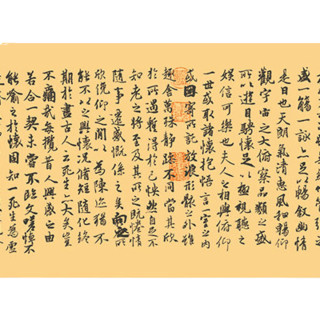 盛一觴一詠亦足以暢敘幽情
是日也天朗氣清惠風和暢仰
觀宇宙之大俯察品類之盛
所以遊目騁懷足以極視聽之
娛信可樂也夫人之相與俯仰
一世或取諸懷抱悟言一室之內
或因寄所託放浪形骸之外雖
趣舍萬殊靜躁不同當其欣
於所遇暫得於己怏然自足不
知老之將至及其所之既惓情
隨事遷感慨係之矣向之所
欣俛仰之閒以為陳迹猶不
能不以之興懷況脩短隨化終
期於盡古人云死生亦大矣豈
不痛哉每攬昔人興感之由
若合一契未嘗不臨文嗟悼不
能喻之於懷固知一死生為虛